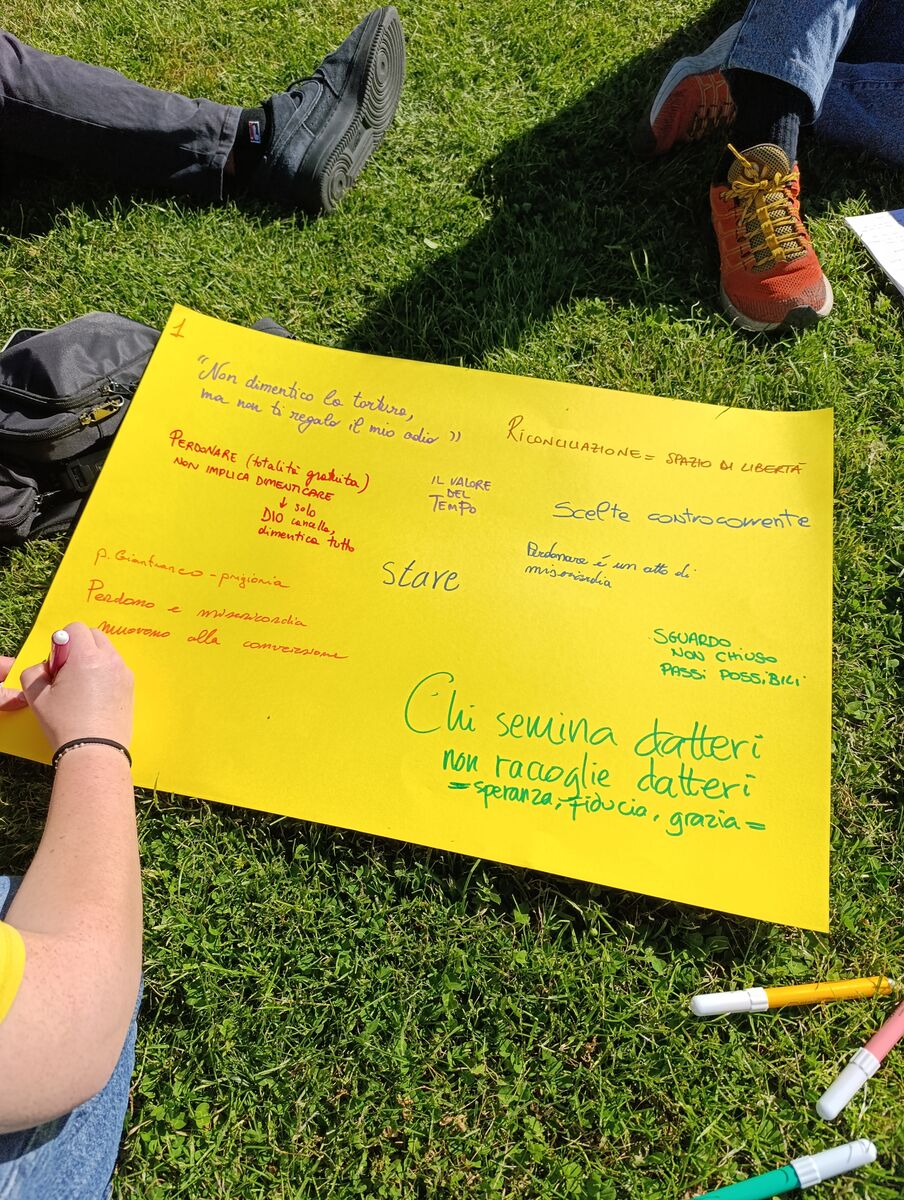 1
"Non dimentico la tortura,
ma non ti regalo il mio odio"
RICONCILIAZIONE = SPAZIO DI LIBERTÀ
PERDONARE (totalità gratuita)
NON IMPLICA DIMENTICARE
↓ solo
DIO cancella,
dimentica tutto
IL VALORE
DEL
TEMPO
Scelte controcorrente
stare
Perdonare è un atto di
misericordia
p. Gianfranco - prigionia
Perdono e misericordia
muovono alla conversione
SGUARDO
NON CHIUSO
PASSI POSSIBILI
Chi semina datteri
non raccoglie datteri
= speranza, fiducia, grazia =